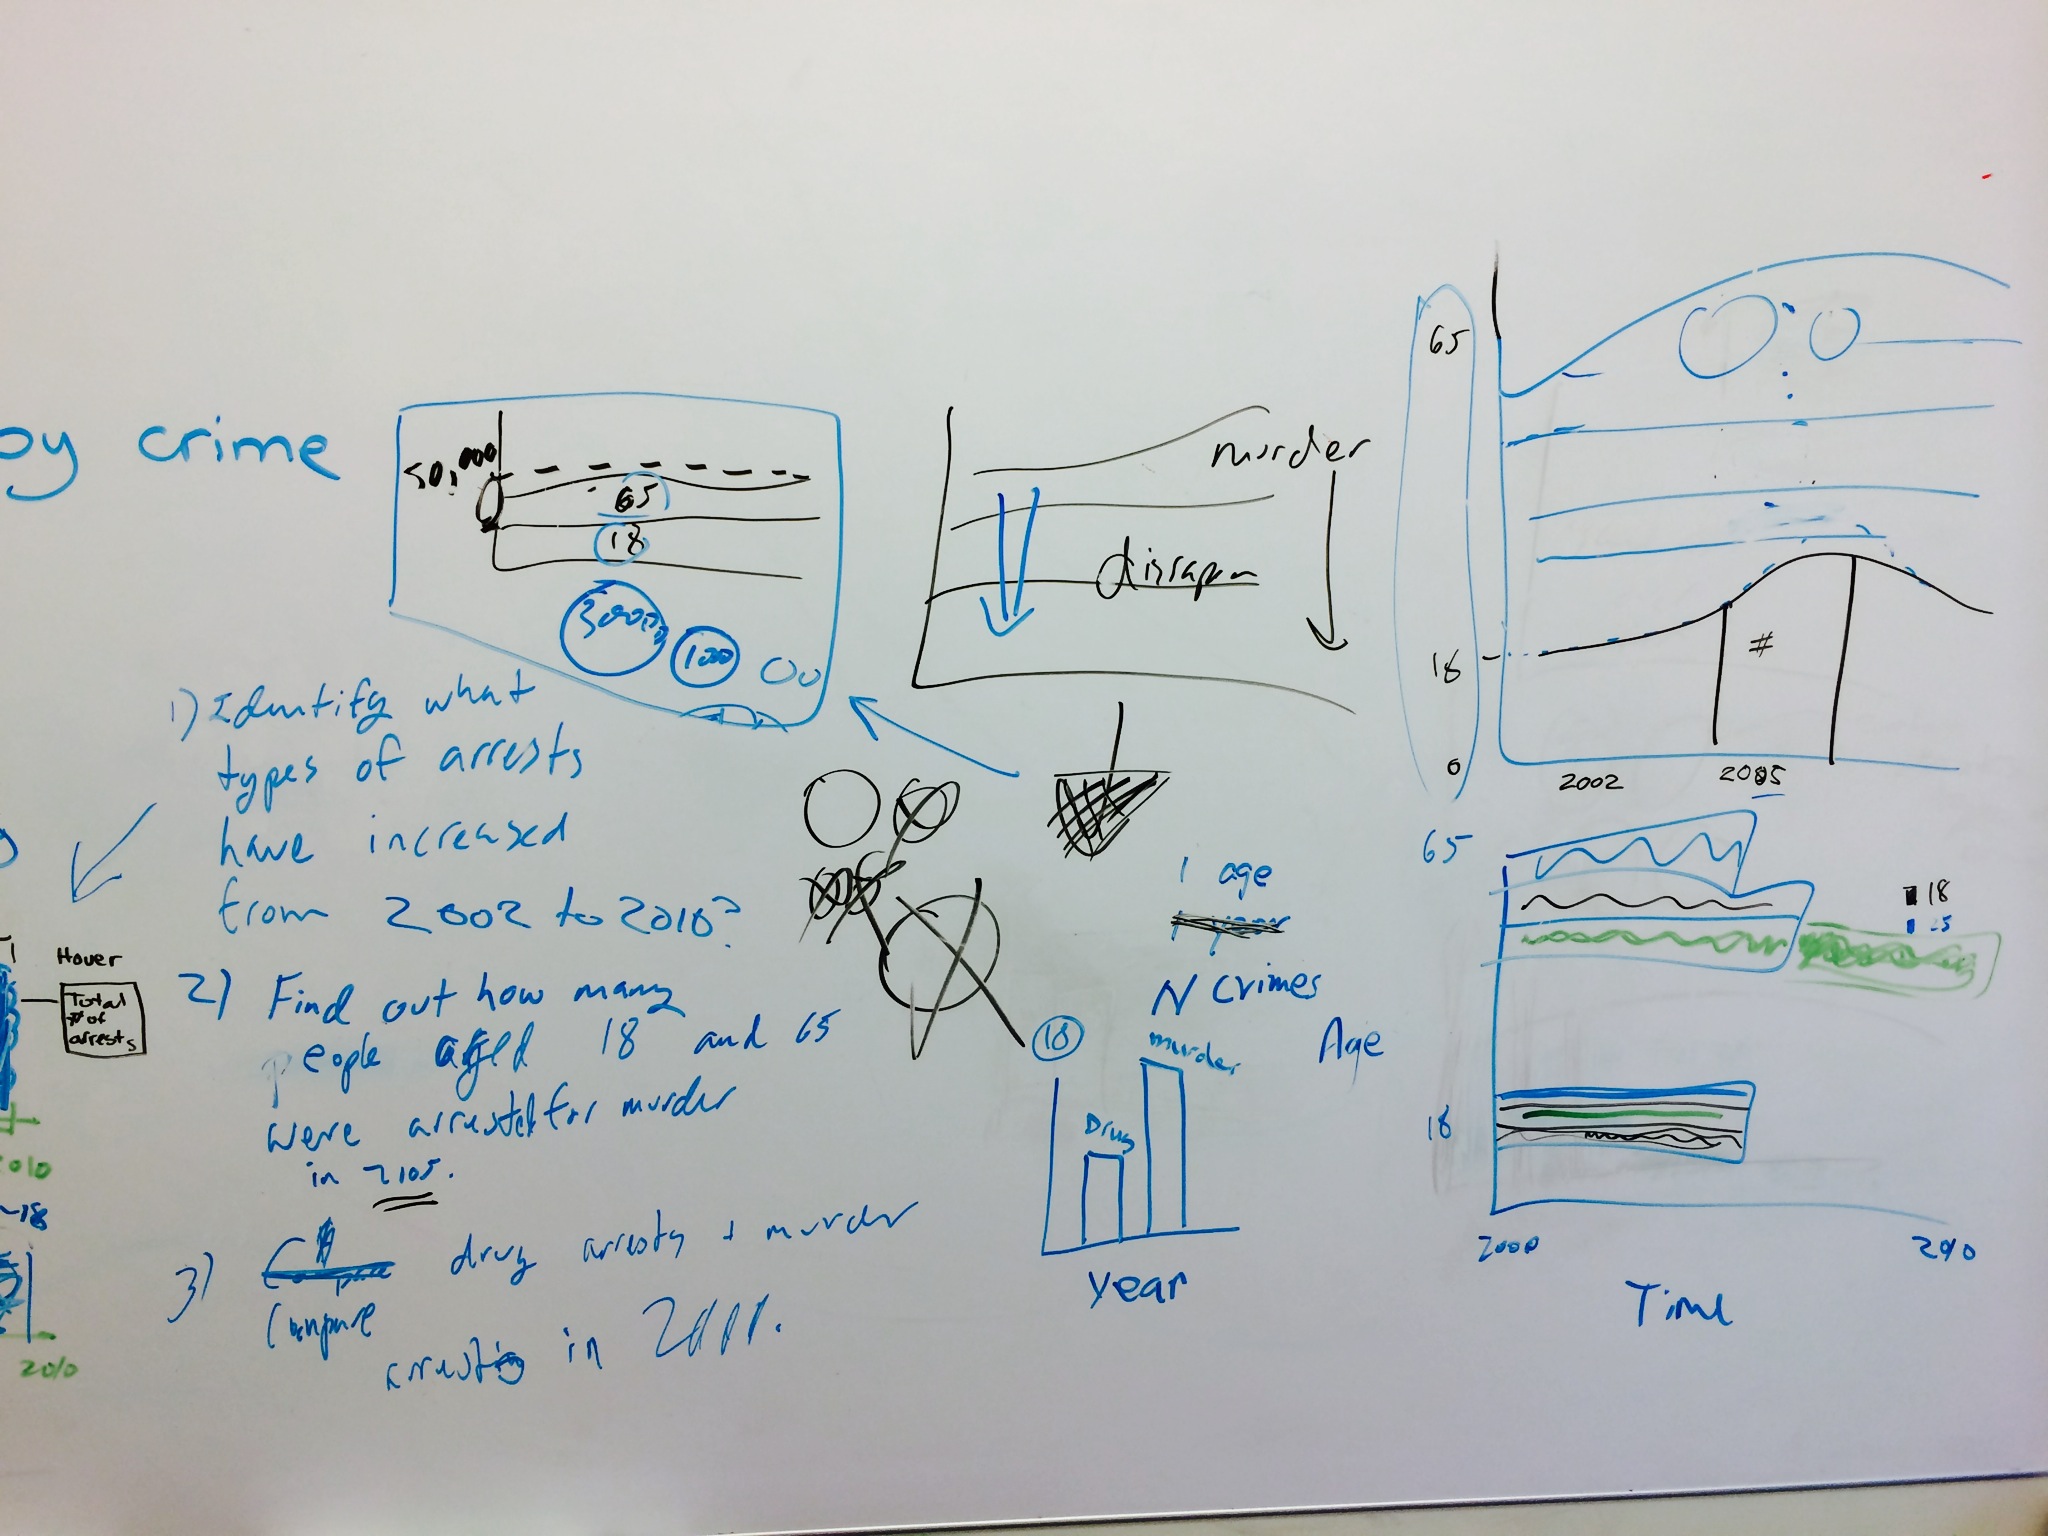 by crime
50,000
65
18
1000
murder
65
18
#
0
2002
2005
1) Identify what
types of arrests
have increased
from 2002 to 2010?
2) Find out how many
people aged 18 and 65
were arrested for murder
in 2105.
3)
Compare
drug arrests + murder
in
Hover
Total
# of
arrests
2010
18
2010
1 age
N crimes
18
murder
Drug
Year
65
18
Age
18
2000
2010
Time